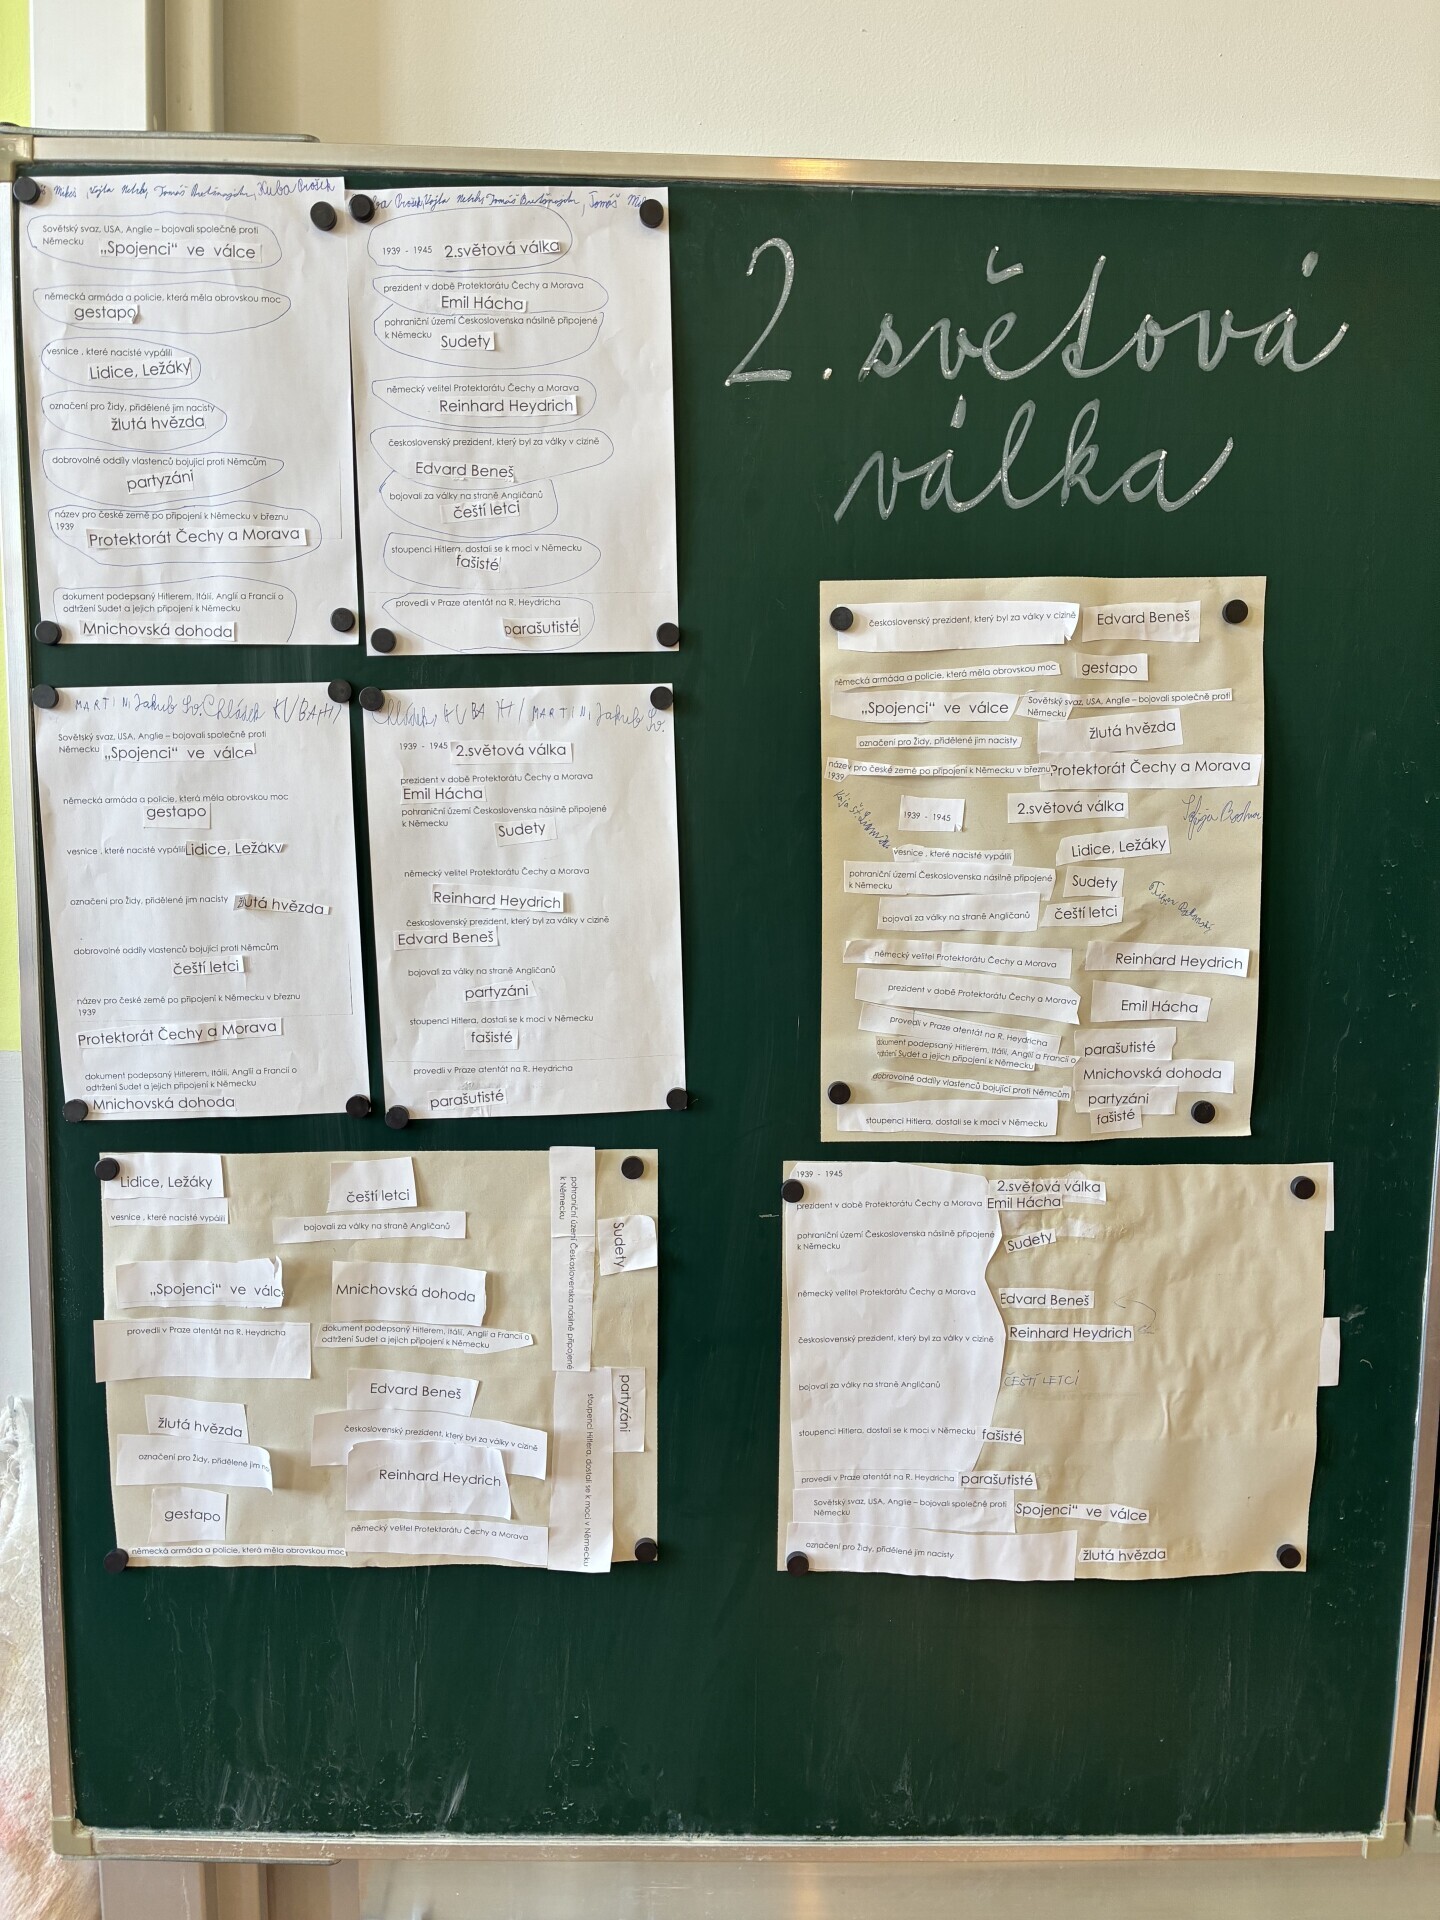 2. světová
válka
Tomáš
Kuba
Sovětský svaz, USA, Anglie – bojovali společně proti
Německu „Spojenci“ ve válce
německá armáda a policie, která měla obrovskou moc
gestapo
vesnice , které nacisté vypálili
Lidice, Ležáky
označení pro Židy, přidělené jim nacisty
žlutá hvězda
dobrovolné oddíly vlastenců bojující proti Němcům
partyzáni
název pro české země po připojení k Německu v březnu
1939
Protektorát Čechy a Morava
dokument podepsaný Hitlerem, Itálií, Anglií a Francií o
odtržení Sudet a jejich připojení k Německu
Mnichovská dohoda
Tomáš
Tomáš
1939 - 1945 2.světová válka
prezident v době Protektorátu Čechy a Morava
Emil Hácha
pohraniční území Československa násilně připojené
k Německu Sudety
německý velitel Protektorátu Čechy a Morava
Reinhard Heydrich
československý prezident, který byl za války v cizině
Edvard Beneš
bojovali za války na straně Angličanů
čeští letci
stoupenci Hitlera, dostali se k moci v Německu
fašisté
provedli v Praze atentát na R. Heydricha
parašutisté
MARTIN Jakub
Sovětský svaz, USA, Anglie – bojovali společně proti
Německu „Spojenci“ ve válce
německá armáda a policie, která měla obrovskou moc
gestapo
vesnice , které nacisté vypálili Lidice, Ležáky
označení pro Židy, přidělené jim nacisty žlutá hvězda
dobrovolné oddíly vlastenců bojující proti Němcům
čeští letci
název pro české země po připojení k Německu v březnu
1939
Protektorát Čechy a Morava
dokument podepsaný Hitlerem, Itálií, Anglií a Francií o
odtržení Sudet a jejich připojení k Německu
Mnichovská dohoda
KUBA MARTIN Jakub
1939 - 1945 2.světová válka
prezident v době Protektorátu Čechy a Morava
Emil Hácha
pohraniční území Československa násilně připojené
k Německu
Sudety
německý velitel Protektorátu Čechy a Morava
Reinhard Heydrich
československý prezident, který byl za války v cizině
Edvard Beneš
bojovali za války na straně Angličanů
partyzáni
stoupenci Hitlera, dostali se k moci v Německu
fašisté
provedli v Praze atentát na R. Heydricha
parašutisté
československý prezident, který byl za války v cizině Edvard Beneš
německá armáda a policie, která měla obrovskou moc gestapo
„Spojenci“ ve válce Sovětský svaz, USA, Anglie – bojovali společně proti
Německu
označení pro Židy, přidělené jim nacisty žlutá hvězda
název pro české země po připojení k Německu v březnu Protektorát Čechy a Morava
1939
1939 - 1945 2.světová válka
vesnice , které nacisté vypálili Lidice, Ležáky
pohraniční území Československa násilně připojené
k Německu Sudety
bojovali za války na straně Angličanů čeští letci
německý velitel Protektorátu Čechy a Morava Reinhard Heydrich
prezident v době Protektorátu Čechy a Morava Emil Hácha
provedli v Praze atentát na R. Heydricha parašutisté
dokument podepsaný Hitlerem, Itálií, Anglií a Francií o
odtržení Sudet a jejich připojení k Německu Mnichovská dohoda
dobrovolné oddíly vlastenců bojující proti Němcům partyzáni
stoupenci Hitlera, dostali se k moci v Německu fašisté
Lidice, Ležáky
vesnice , které nacisté vypálili
„Spojenci“ ve válce
provedli v Praze atentát na R. Heydricha
žlutá hvězda
označení pro Židy, přidělené jim na
gestapo
německá armáda a policie, která měla obrovskou moc
čeští letci
bojovali za války na straně Angličanů
Mnichovská dohoda
dokument podepsaný Hitlerem, Itálií, Anglií a Francií o
odtržení Sudet a jejich připojení k Německu
Edvard Beneš
československý prezident, který byl za války v cizině
Reinhard Heydrich
německý velitel Protektorátu Čechy a Morava
pohraniční území Československa násilně připojené
k Německu
Sudety
stoupenci Hitlera, dostali se k moci v Německu
partyzáni
1939 - 1945
2.světová válka
prezident v době Protektorátu Čechy a Morava Emil Hácha
pohraniční území Československa násilně připojené
k Německu Sudety
německý velitel Protektorátu Čechy a Morava Edvard Beneš
československý prezident, který byl za války v cizině Reinhard Heydrich
bojovali za války na straně Angličanů ČEŠTÍ LETCI
stoupenci Hitlera, dostali se k moci v Německu fašisté
provedli v Praze atentát na R. Heydricha parašutisté
Sovětský svaz, USA, Anglie – bojovali společně proti
Německu Spojenci“ ve válce
označení pro Židy, přidělené jim nacisty žlutá hvězda